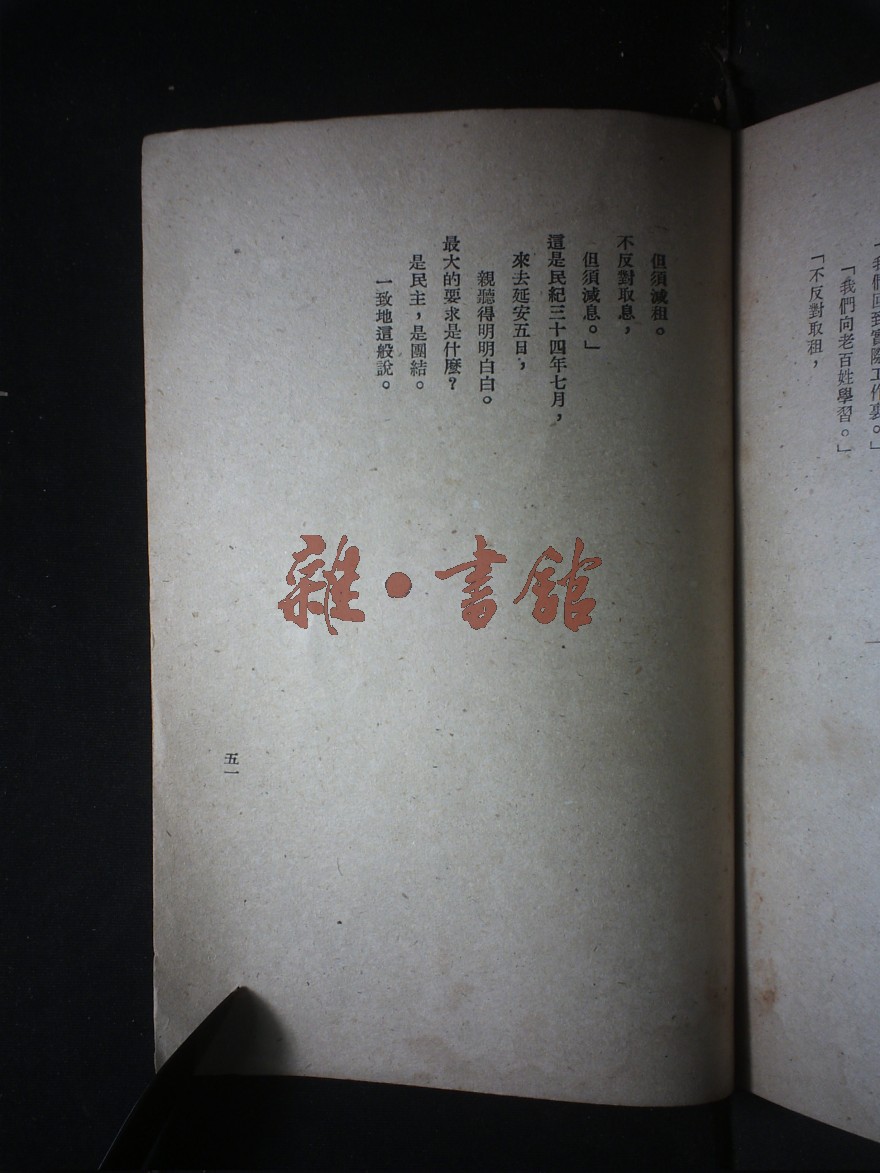 「我們回到實際工作裏。」
「我們向老百姓學習。」
「不反對取租，
但須減租。
不反對取息，
但須減息。」
這是民紀三十四年七月，
來去延安五日，
親聽得明明白白。
最大的要求是什麼？
是民主，是團結。
一致地這般說。
五一
雜·書館